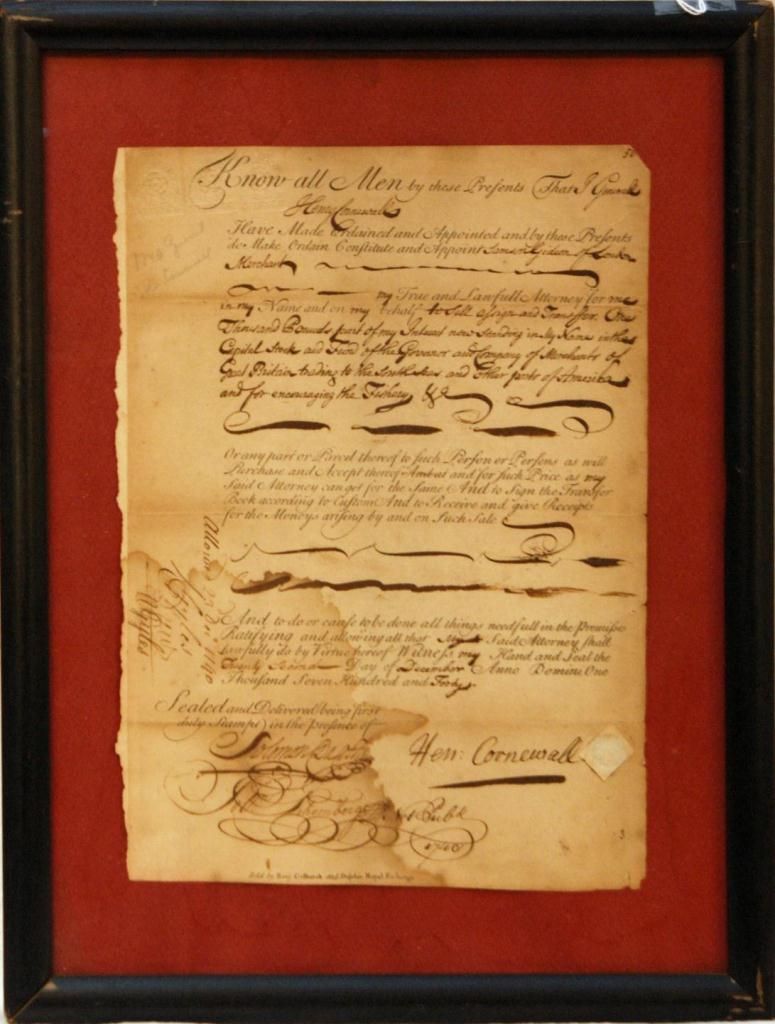 50
Know all Men by these Presents That I General
Henry Cornewall
Have Made Ordained and Appointed and by these Presents
do Make Ordain Constitute and Appoint Samson Gideon of London
Merchant
my True and Lawfull Attorney for me
in my Name and on my behalf to Sell assign and Transfer One
Thousand Pounds part of my Interest now standing in My Name in the
Capital Stock and Fund of the Governor and Company of Merchants of
Great Britain trading to the South Seas and other parts of America
and for encouraging the Fishery
Or any part or Parcel thereof to such Person or Persons as will
Purchase and Accept thereof and for such Price as my
Said Attorney can get for the Same And to Sign the Transfer
Book according to Custom And to Receive and give Receipts
for the Moneys arising by and on Such Sale
And to do or cause to be done all things needfull in the Premises
Ratifying and allowing all that my Said Attorney Shall
Lawfully do by Virtue hereof Witness my Hand and Seal the
Twenty Second Day of December Anno Domini One
Thousand Seven Hundred and Forty
Sealed and Delivered being first
duly Stampt in the presence of
Hen: Cornewall
1740
3
Sold by Royal Exchange
Allowed 23 Dec 1740